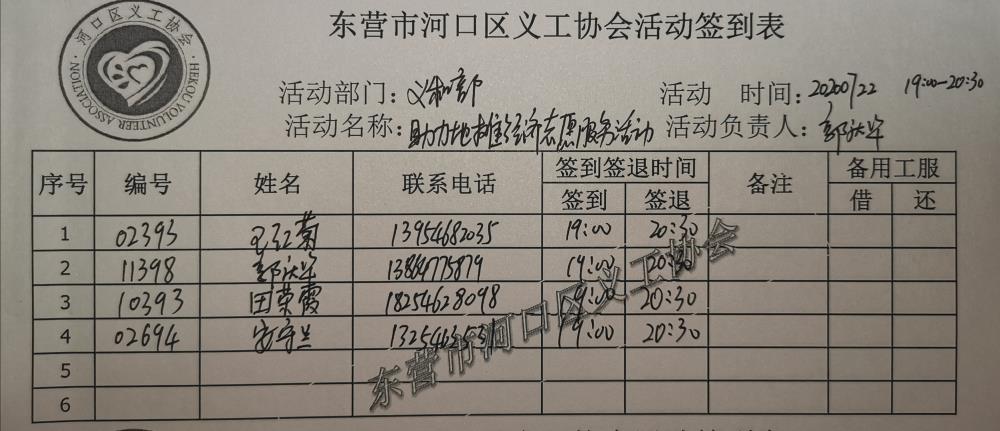 河口区义工协会
HEKOU VOLUNTEER ASSOCIATION
东营市河口区义工协会活动签到表
活动部门：义和部 活动 时间：20200722 19:00-20:30
活动名称：助力地摊经济志愿服务活动 活动负责人：郭庆华
序号 编号 姓名 联系电话 签到签退时间 备注 备用工服
签到 签退 借 还
1 02393 王红菊 13954682035 19:00 20:30
2 11398 郭庆华 19:00 20:30
3 10393 田荣霞 18254628098 19:00 20:30
4 02694 安守兰 19:00 20:30
5
6
东营市河口区义工协会